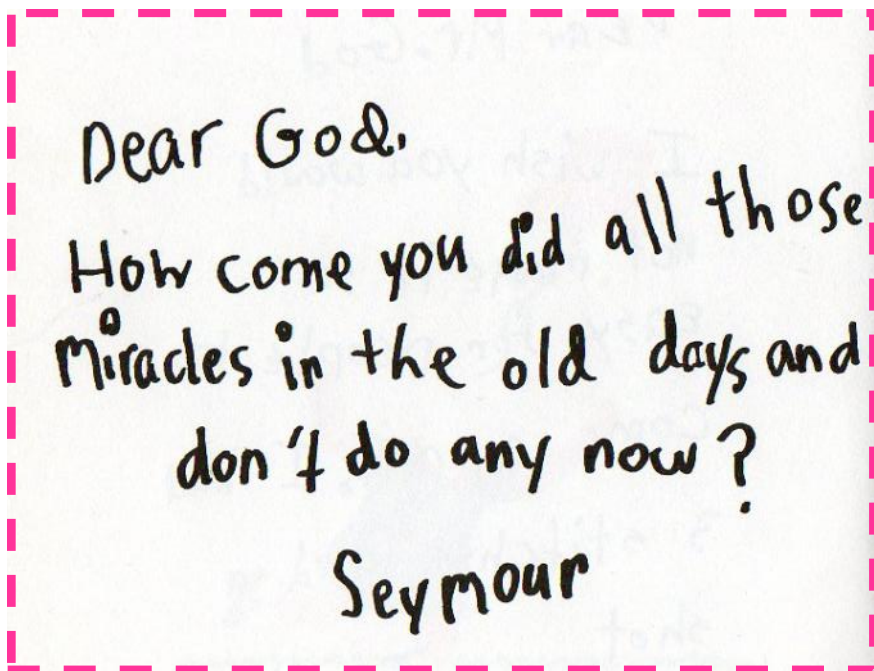 Dear God.
How come you did all those
miracles in the old days and
don't do any now?
Seymour